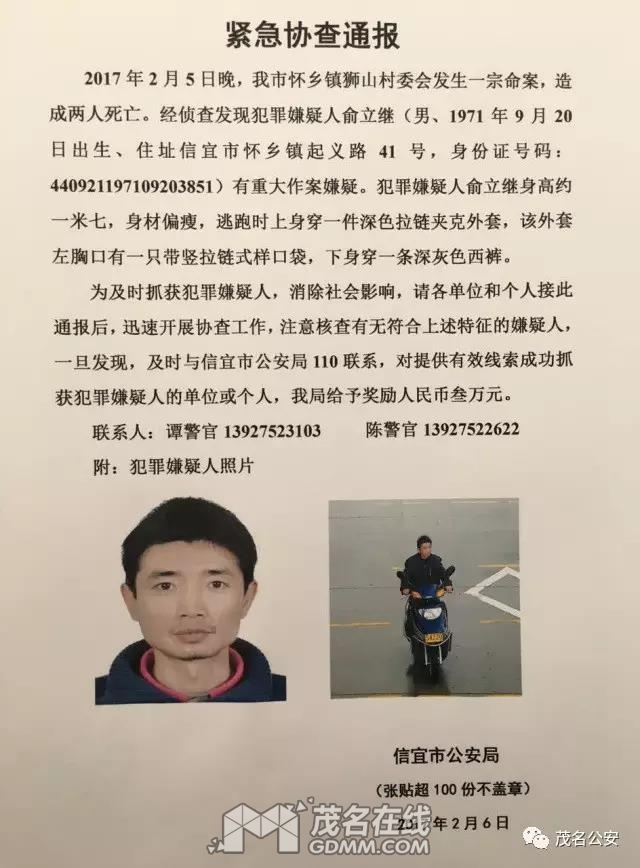 紧急协查通报
2017 年 2 月 5 日晚，我市怀乡镇狮山村委会发生一宗命案，造
成两人死亡。经侦查发现犯罪嫌疑人俞立继（男、1971 年 9 月 20
日出生、住址信宜市怀乡镇起义路 41 号，身份证号码：
440921197109203851）有重大作案嫌疑。犯罪嫌疑人俞立继身高约
一米七，身材偏瘦，逃跑时上身穿一件深色拉链夹克外套，该外套
左胸口有一只带竖拉链式样口袋，下身穿一条深灰色西裤。
为及时抓获犯罪嫌疑人，消除社会影响，请各单位和个人接此
通报后，迅速开展协查工作，注意核查有无符合上述特征的嫌疑人，
一旦发现，及时与信宜市公安局 110 联系，对提供有效线索成功抓
获犯罪嫌疑人的单位或个人，我局给予奖励人民币叁万元。
联系人：谭警官 13927523103 陈警官 13927522622
附：犯罪嫌疑人照片
信宜市公安局
（张贴超 100 份不盖章）
2017 年 2 月 6 日
茂名在线
GDMM.COM
茂名公安